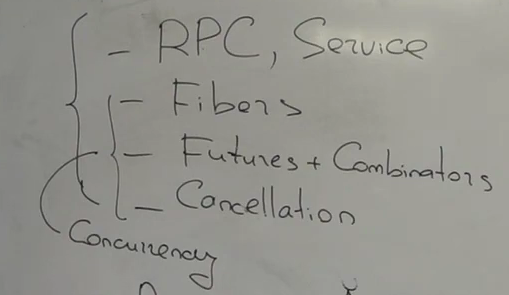 - RPC, Service
- Fibers
- Futures + Combinators
- Cancellation
Concurrency